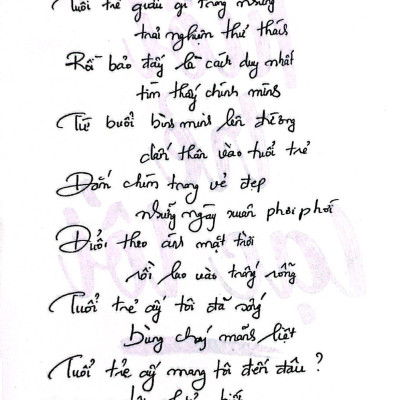 Tuổi trẻ giấu gì trong những
trải nghiệm thử thách
Rồi bảo đấy là cách duy nhất
tìm thấy chính mình
Từ buổi bình minh lên đường
dấn thân vào tuổi trẻ
Đắm chìm trong vẻ đẹp
những ngày xuân phơi phới
Đuổi theo ánh mặt trời
rồi lao vào trống rỗng
Tuổi trẻ ấy tôi đã sống
bùng cháy mãnh liệt
Tuổi trẻ ấy mang tôi đến đâu?